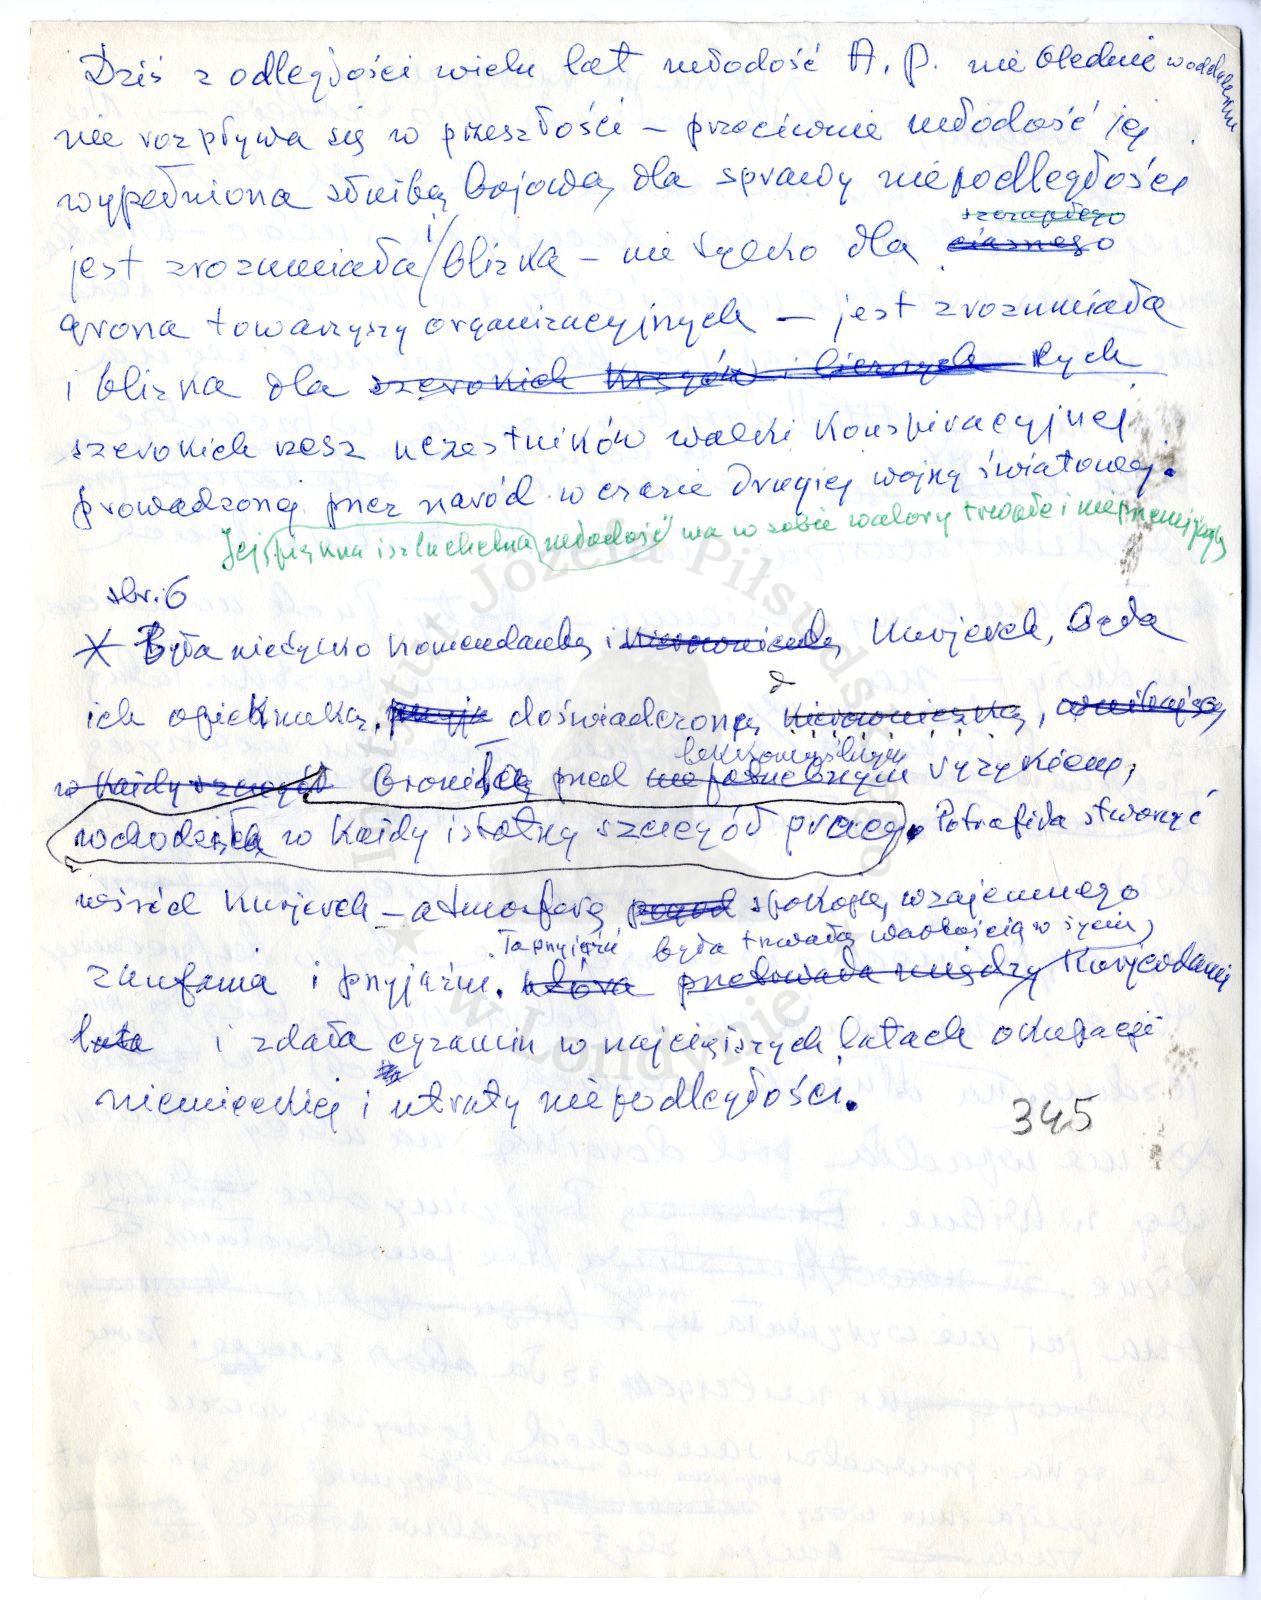 Dziś z odległości wielu lat młodość A. P. nie blednie w oddaleniu
nie rozpływa się w przeszłości – przeciwnie młodość jej
wypełniona służbą bojową dla sprawy niepodległości
szczupłego
jest zrozumiała i bliska – nie tylko dla ciasnego
grona towarzyszy organizacyjnych – jest zrozumiała
i bliska dla szerokich kręgów i licznych tych
szerokich rzesz uczestników walki konspiracyjnej
prowadzonej przez naród w czasie drugiej wojny światowej.
Jej piękna i szlachetna młodość ma w sobie walory trwałe i nieprzemijające
str. 6
* Była nie tylko komendantką i kierowniczką Kurjerek, była
ich opiekunką, doświadczoną kierowniczką,
lekkomyślnym
w każdy szczegół broniła przed niepotrzebnym ryzykiem,
wchodziła w każdy istotny szczegół pracy. Potrafiła stworzyć
wśród Kurjerek – atmosferę pogod spokoju, wzajemnego
Ta przyjaźń była trwałą wartością w życiu,
zaufania i przyjaźni. która przetrwała między Kurjerkami
lata i zdała egzamin w najcięższych latach okupacji
niemieckiej i utraty niepodległości.
345
Instytut Józefa Piłsudskiego
w Londynie